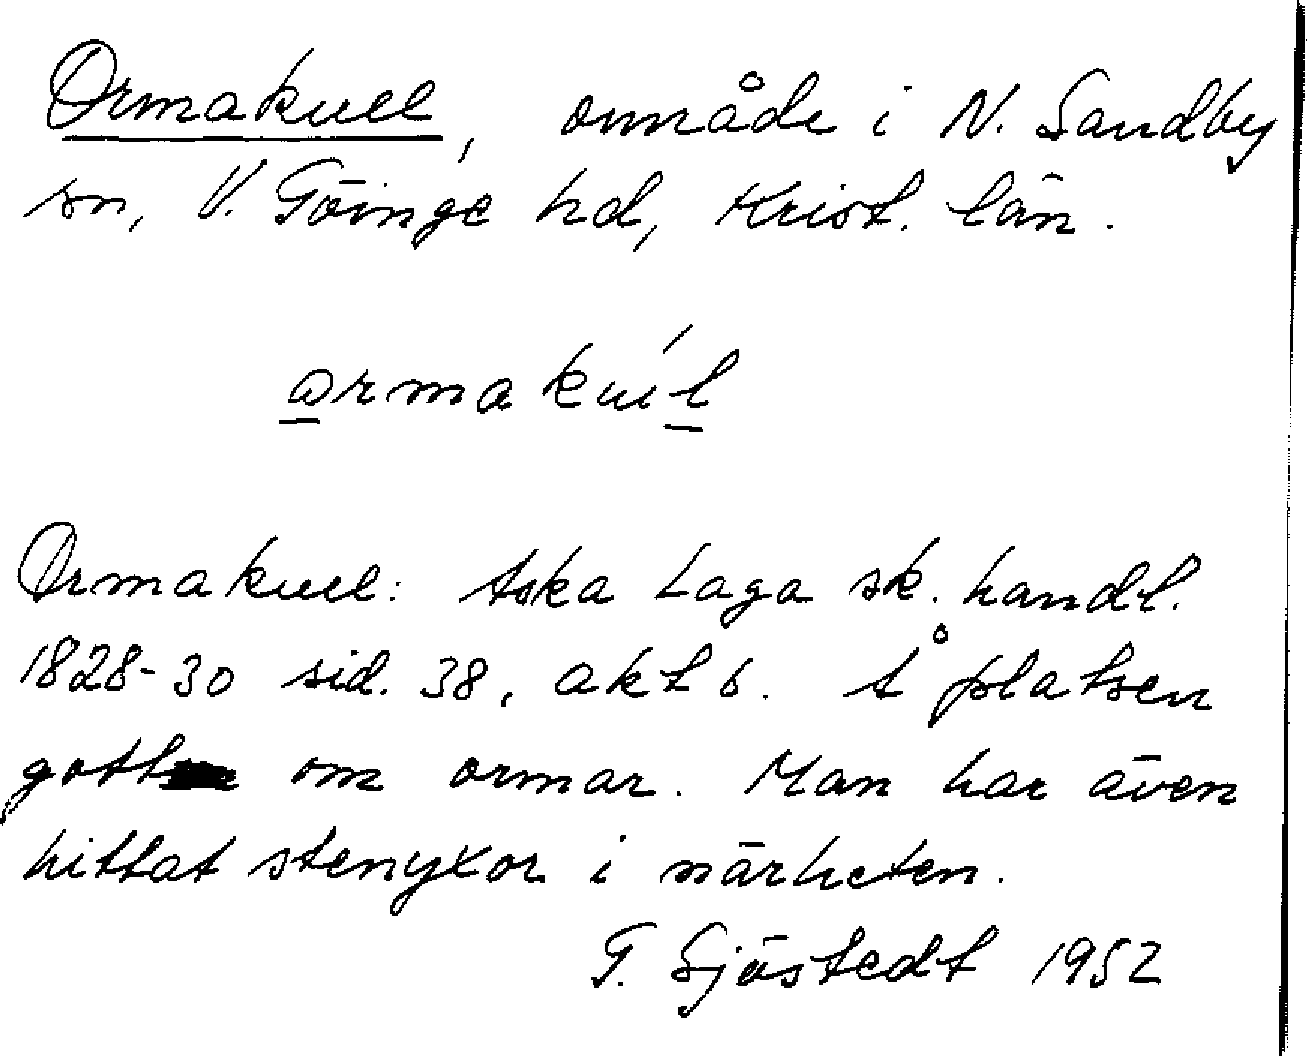 Ormakull, område i N. Sandby
sn, V. Göinge hd, Krist. län.
ormakul
Ormakull: Aska Laga sk. handl.
1828-30 sid. 38, akt 6. Å platsen
gott om ormar. Man har även
hittat stenyxor i närheten.
G. Sjöstedt 1952